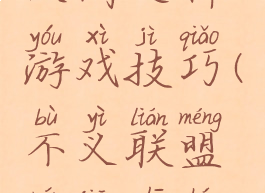 yóu xì jì qiǎo
游戏技巧(
bù yì lián méng
不义联盟